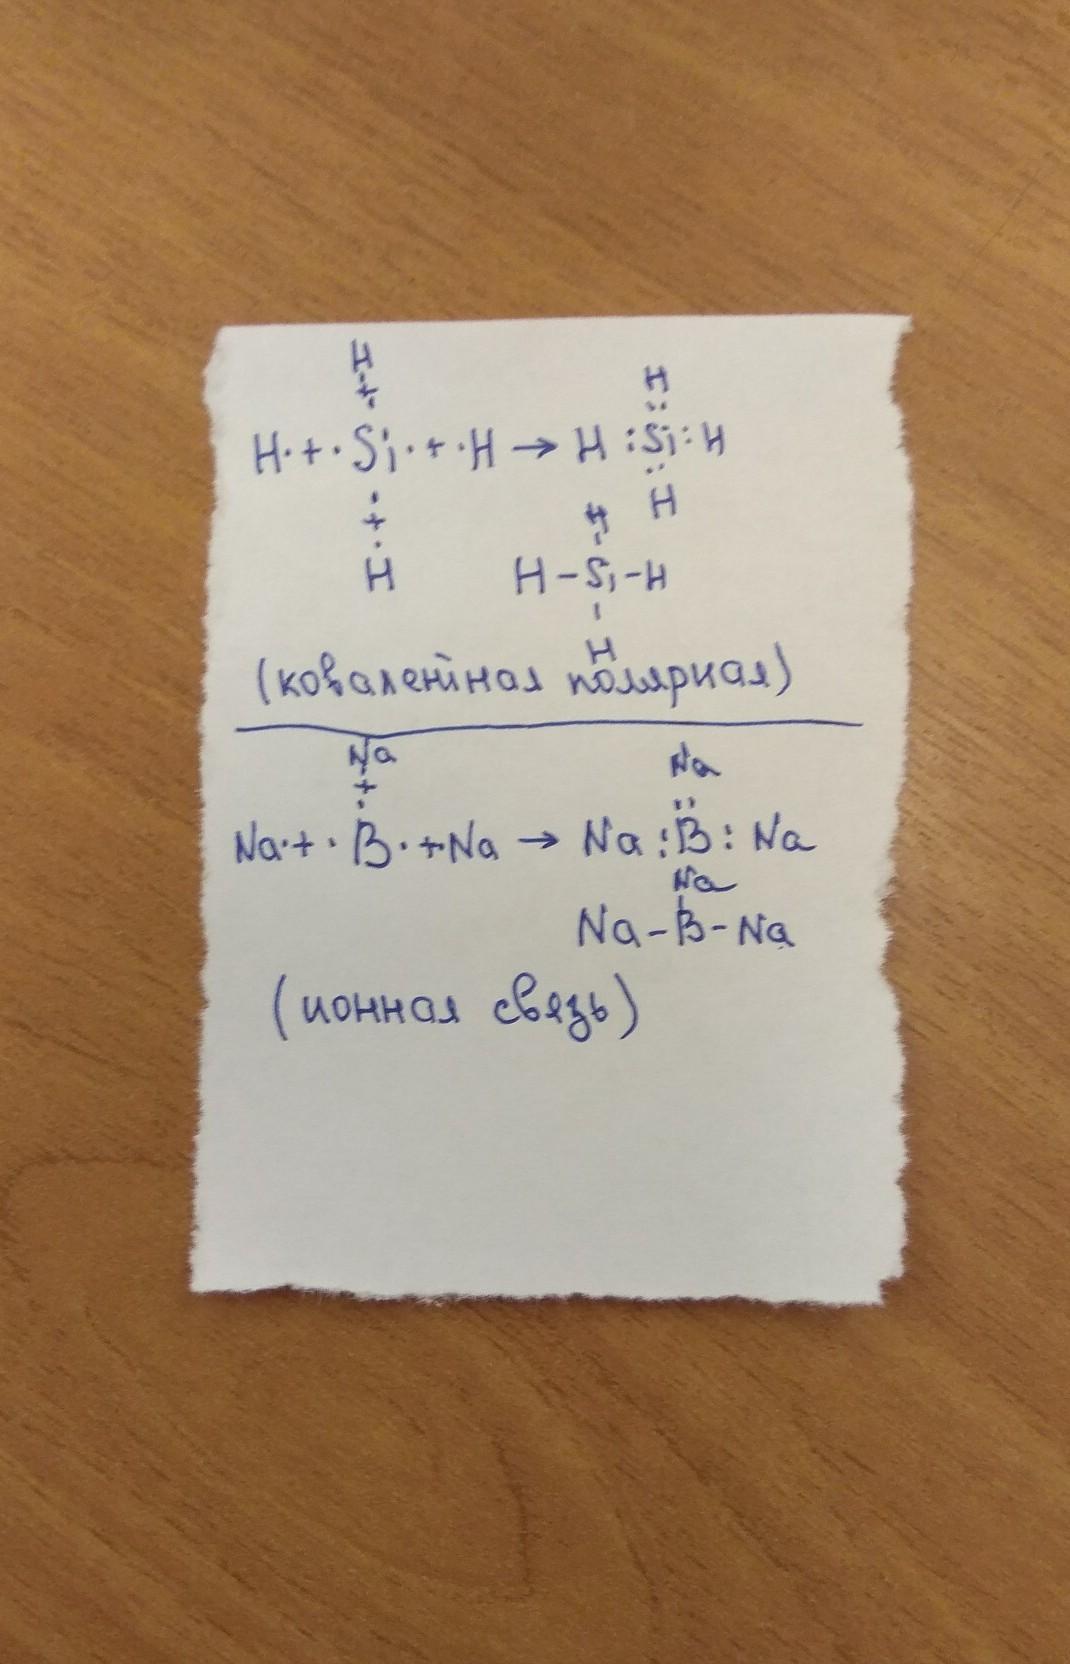 H
+
H·+·Si·+·H→H:Si:H
+
H
H
H
H
H-Si-H
H
(ковалентная полярная)
Na
+
Na·+·B·+·Na→Na:B:Na
Na
Na
Na-B-Na
(ионная связь)